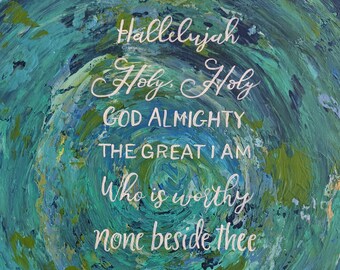 Hallelujah
Holy, Holy
GOD ALMIGHTY
THE GREAT I AM
Who is worthy
none beside thee